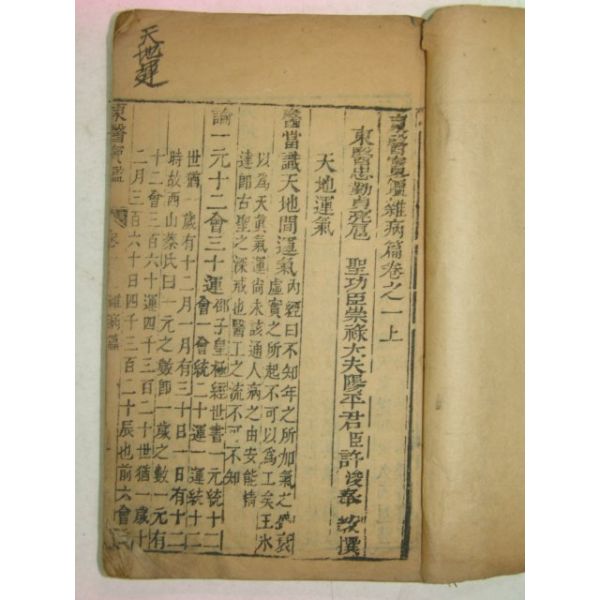 東醫寶鑑雜病篇卷之一上
聖功臣崇祿大夫陽平君臣許浚奉教撰
天地運氣
醫當識天地間運氣
內經曰不知年之所加氣之盛衰
虛實之所起不可以為工矣王冰
以為天眞氣運尙未該通人病之由安能精
達卽古聖之深戒也醫工之流不可不知
論一元十二會三十運
邵子皇極經世書一元統十二
會一會統三十運一運統十二
世猶一歲有十二月一月有三十日一日有十二
時故西山蔡氏曰一元之數卽一歲之數一元有
十二會三百六十運四千三百二十世猶一歲十
二月三百六十日四千三百二十辰也前六會
東醫寶鑑
卷一
雜病篇
天地運